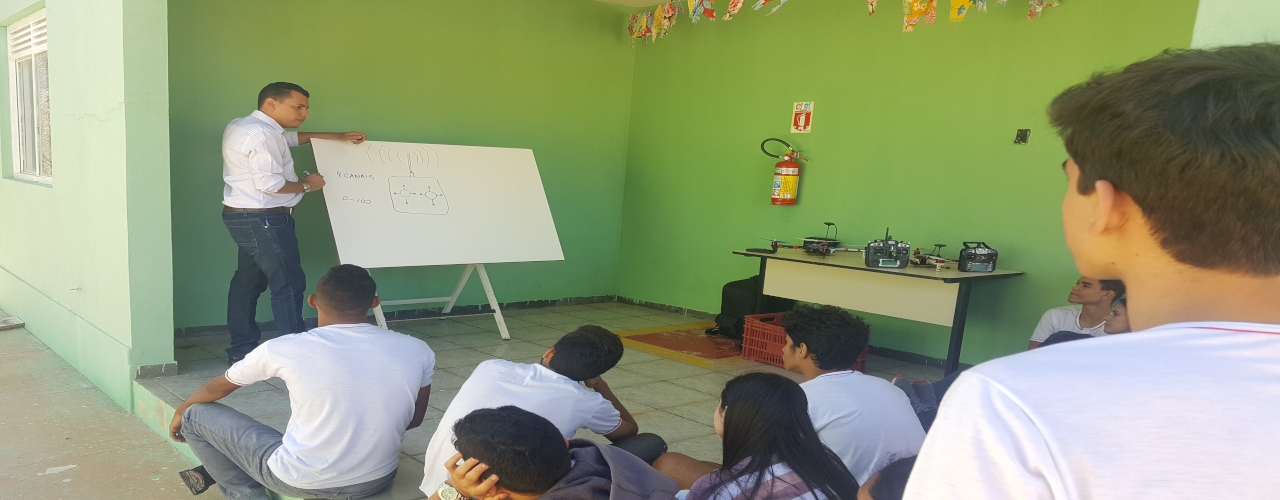 4 CANAIS
0-100